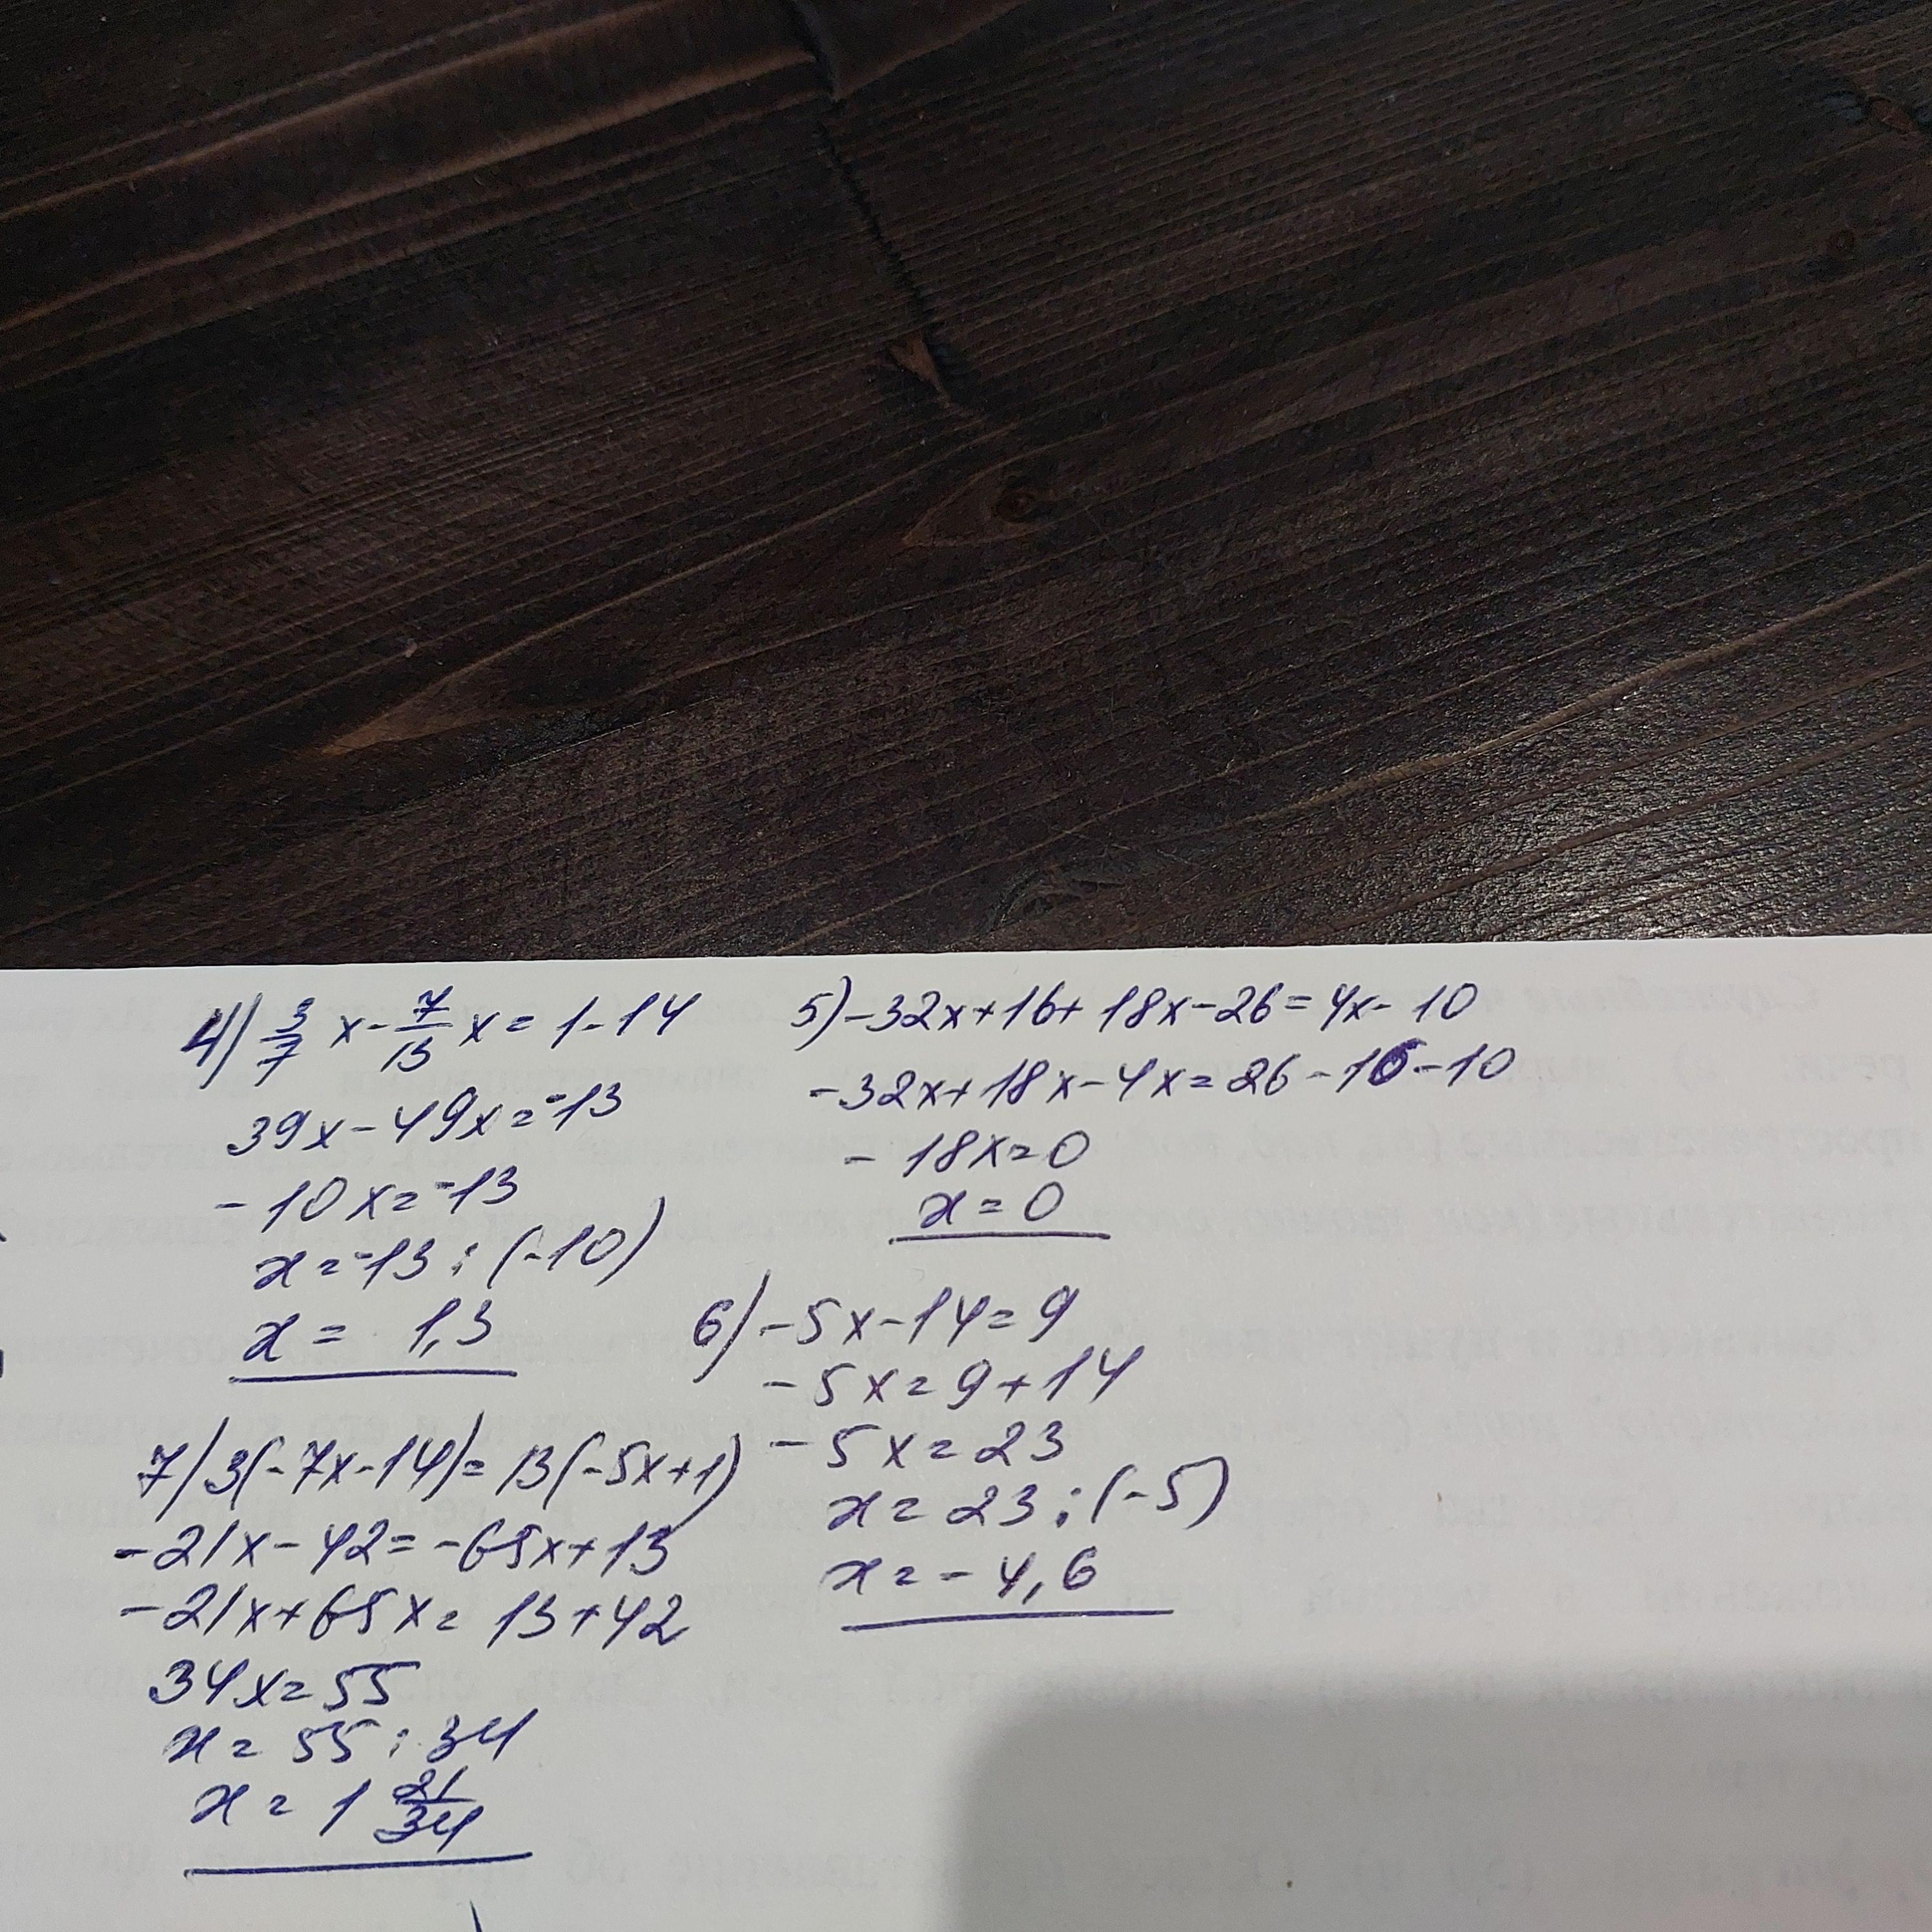 4) 3/7 x - 7/13 x = 1 - 14
39x - 49x = -13
- 10x = -13
x = -13 : (-10)
x = 1,3
5) -32x + 16 + 18x - 26 = 4x - 10
-32x + 18x - 4x = 26 - 16 - 10
- 18x = 0
x = 0
6) -5x - 14 = 9
-5x = 9 + 14
-5x = 23
x = 23 : (-5)
x = -4,6
7) 3(-7x - 14) = 13(-5x + 1)
-21x - 42 = -65x + 13
-21x + 65x = 13 + 42
34x = 55
x = 55 : 34
x = 1 21/34